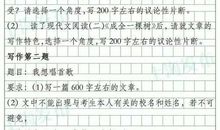 受？请选择一个角度，写200字左右的议论性片断。
(2) 读了现代文阅读(二)《成全一棵树》后，请就文章的
写作特色，选择一个角度，写200字左右的议论性片断。
写作第二题
题目：我想唱首歌
要求：(1)写一篇600字左右的文章。
(2) 文中不能出现与考生本人有关的校名和姓名，若不可
避免，